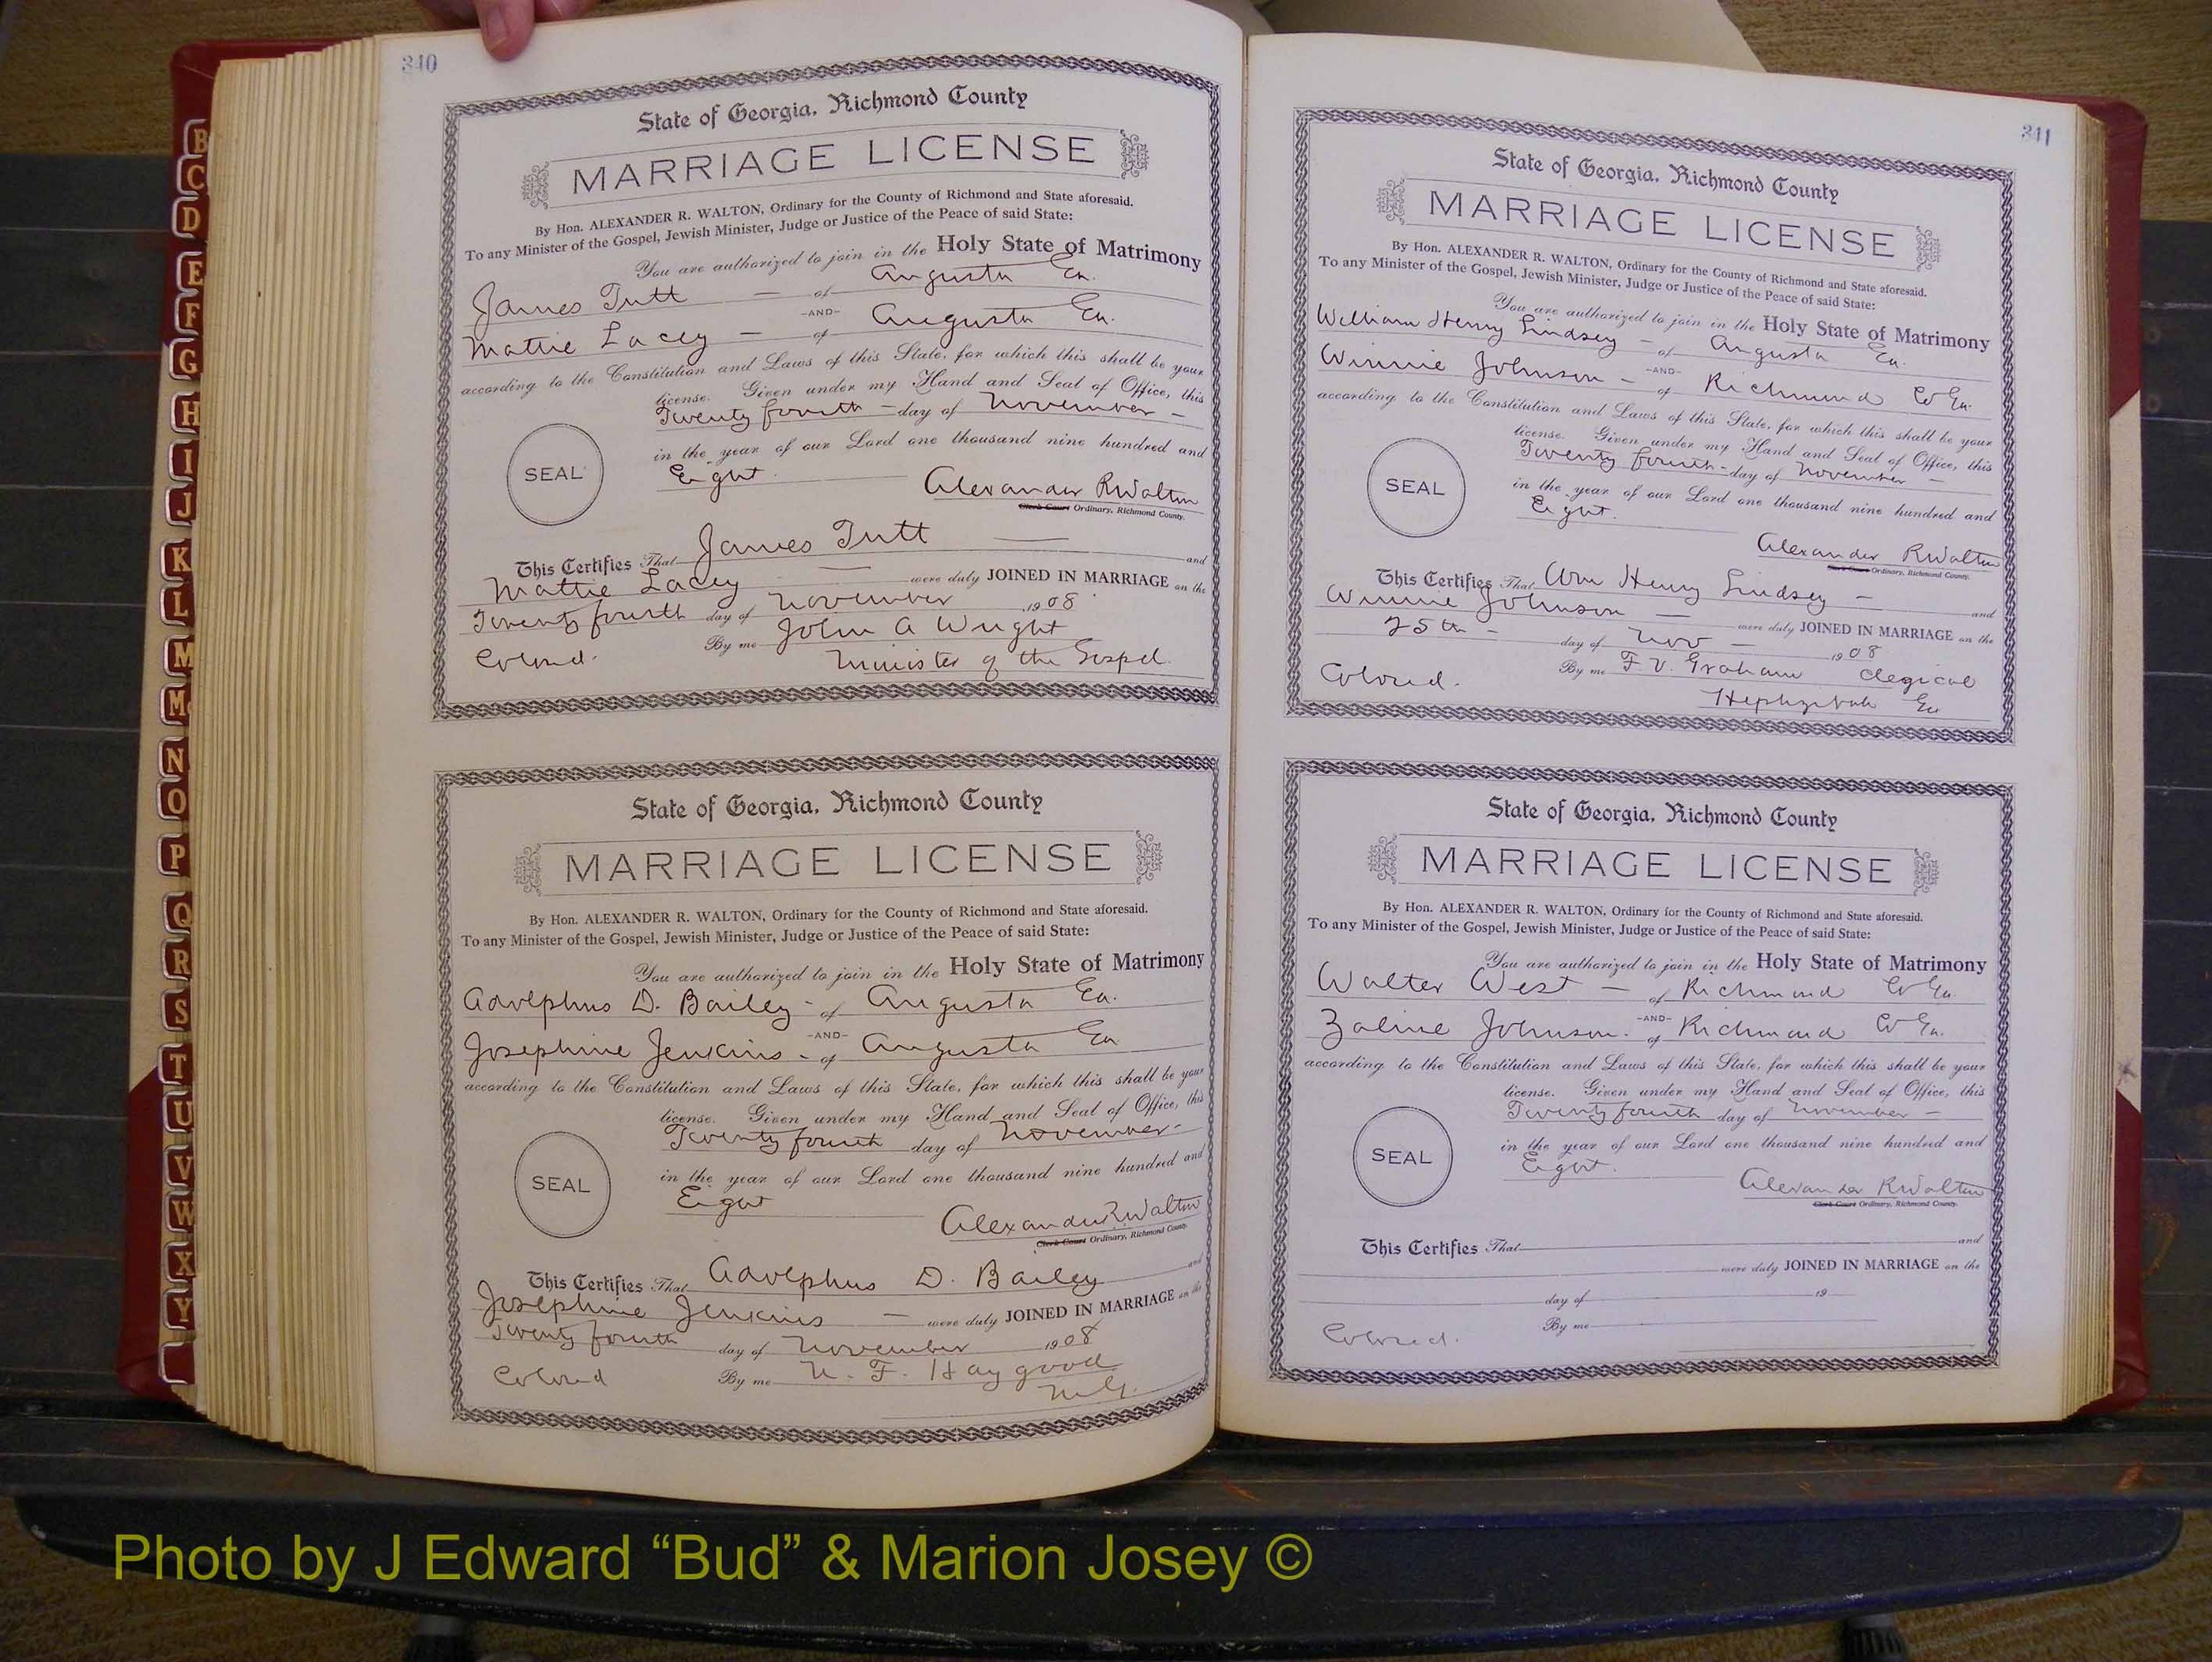 B
C
D
E
F
G
H
I
J
K
L
M
Mc
N
O
P
Q
R
S
T
U
V
W
X
Y
340
State of Georgia, Richmond County
MARRIAGE LICENSE
By Hon. ALEXANDER R. WALTON, Ordinary for the County of Richmond and State aforesaid.
To any Minister of the Gospel, Jewish Minister, Judge or Justice of the Peace of said State:
You are authorized to join in the Holy State of Matrimony
James Tutt — of Augusta Ga.
-AND-
Mattie Lacey — of Augusta Ga.
according to the Constitution and Laws of this State, for which this shall be your
license. Given under my Hand and Seal of Office, this
Twenty fourth - day of November -
in the year of our Lord one thousand nine hundred and
SEAL
Eight.
Alexander R Walton
Clerk Court Ordinary, Richmond County.
This Certifies That James Tutt — and
Mattie Lacey — were duly JOINED IN MARRIAGE on the
Twenty fourth day of November 1908
By me John A Wright
Colored. Minister of the Gospel.
State of Georgia, Richmond County
MARRIAGE LICENSE
By Hon. ALEXANDER R. WALTON, Ordinary for the County of Richmond and State aforesaid.
To any Minister of the Gospel, Jewish Minister, Judge or Justice of the Peace of said State:
You are authorized to join in the Holy State of Matrimony
Adolphus D. Bailey - of Augusta Ga.
-AND-
Josephine Jenkins - of Augusta Ga
according to the Constitution and Laws of this State, for which this shall be your
license. Given under my Hand and Seal of Office, this
Twenty fourth day of November -
in the year of our Lord one thousand nine hundred and
SEAL
Eight
Alexander R Walton
Clerk Court Ordinary, Richmond County.
This Certifies That Adolphus D. Bailey and
Josephine Jenkins — were duly JOINED IN MARRIAGE on the
Twenty fourth day of November 1908
Colored By me N. F. Haygood
M.G.
341
State of Georgia, Richmond County
MARRIAGE LICENSE
By Hon. ALEXANDER R. WALTON, Ordinary for the County of Richmond and State aforesaid.
To any Minister of the Gospel, Jewish Minister, Judge or Justice of the Peace of said State:
You are authorized to join in the Holy State of Matrimony
William Henry Lindsey - of Augusta Ga.
-AND-
Winnie Johnson - of Richmond Co Ga.
according to the Constitution and Laws of this State, for which this shall be your
license. Given under my Hand and Seal of Office, this
Twenty fourth - day of November -
in the year of our Lord one thousand nine hundred and
SEAL
Eight.
Alexander R Walton
Clerk Court Ordinary, Richmond County.
This Certifies That Wm Henry Lindsey - and
Winnie Johnson — were duly JOINED IN MARRIAGE on the
25th - day of Nov - 1908
By me F V. Graham Clegical
Colored. Hephzibah Ga
State of Georgia, Richmond County
MARRIAGE LICENSE
By Hon. ALEXANDER R. WALTON, Ordinary for the County of Richmond and State aforesaid.
To any Minister of the Gospel, Jewish Minister, Judge or Justice of the Peace of said State:
You are authorized to join in the Holy State of Matrimony
Walter West - of Richmond Co Ga
-AND-
Zaline Johnson. of Richmond Co Ga.
according to the Constitution and Laws of this State, for which this shall be your
license. Given under my Hand and Seal of Office, this
Twenty fourth day of November -
in the year of our Lord one thousand nine hundred and
SEAL
Eight.
Alexander R Walton
Clerk Court Ordinary, Richmond County.
This Certifies That and
were duly JOINED IN MARRIAGE on the
day of 19
By me
Colored.
Photo by J Edward “Bud” & Marion Josey ©